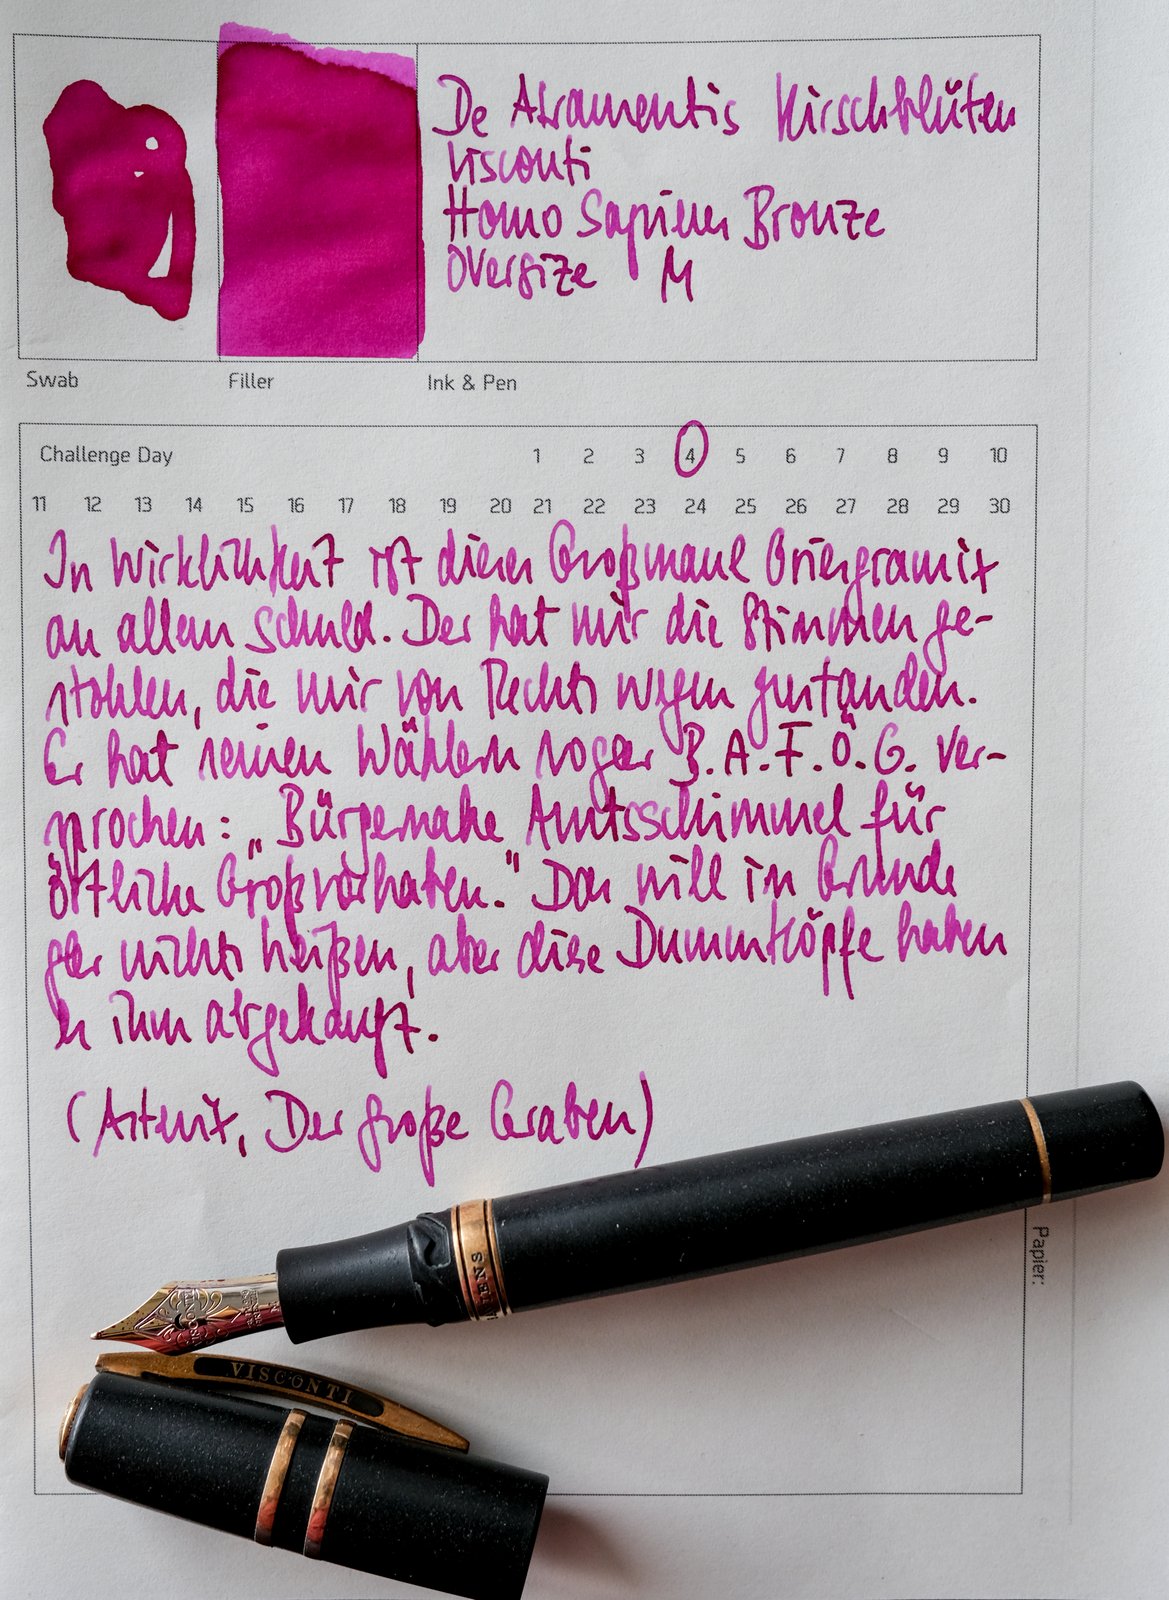 De Atramentis Kirschblüten
Visconti
Homo Sapiens Bronze
Oversize M
Swab Filler Ink & Pen
Challenge Day 1 2 3 4 5 6 7 8 9 10
11 12 13 14 15 16 17 18 19 20 21 22 23 24 25 26 27 28 29 30
In Wirklichkeit ist dieser Großmaul Griesgramix
an allem schuld. Der hat mir die Stimmen ge-
stohlen, die mir von Rechts wegen zustanden.
Er hat seinen Wählern sogar B.A.F.Ö.G. ver-
sprochen: „Bürgernahe Amtsschimmel für
örtliche Großvorhaben." Das will im Grunde
gar nichts heißen, aber diese Dummköpfe haben
es ihm abgekauft.
(Asterix, Der große Graben)
Papier:
VISCONTI
VISCONTI